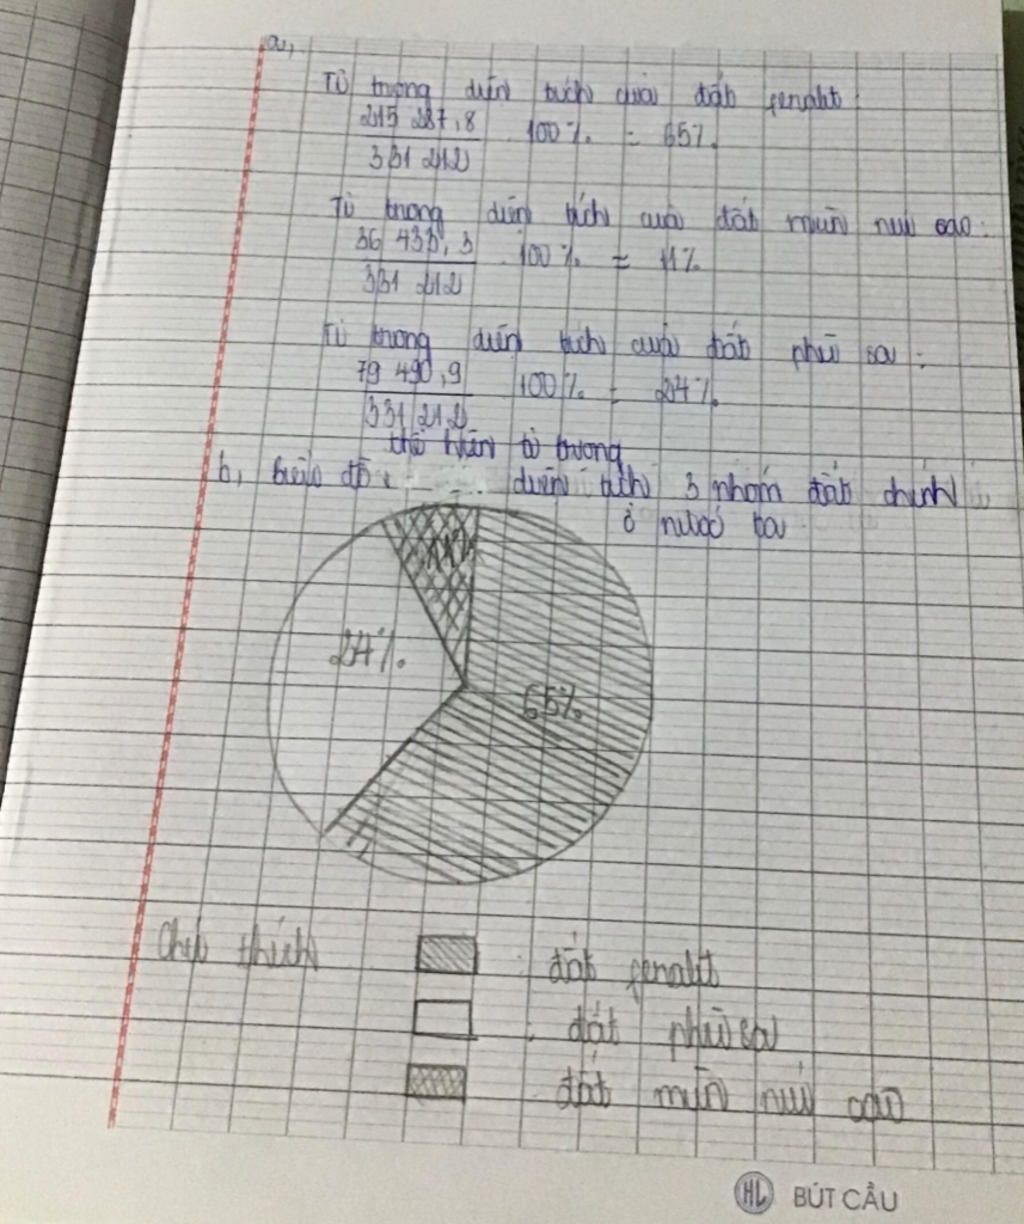 a,
Tỉ trọng diện tích của đất feralit:
215 287,8 100% = 65%
331 212
Tỉ trọng diện tích của đất mùn núi cao:
36 433,3 . 100% = 11%
331 212
Tỉ trọng diện tích của đất phù sa:
79 490,9 100% = 24%
331 212
thể hiện tỉ trọng
b, biểu đồ diện tích 3 nhóm đất chính
ở nước ta
11%
24%.
65%
Chú thích
: đất feralit
: đất phù sa
đất mùn núi cao
HL BÚT CẦU